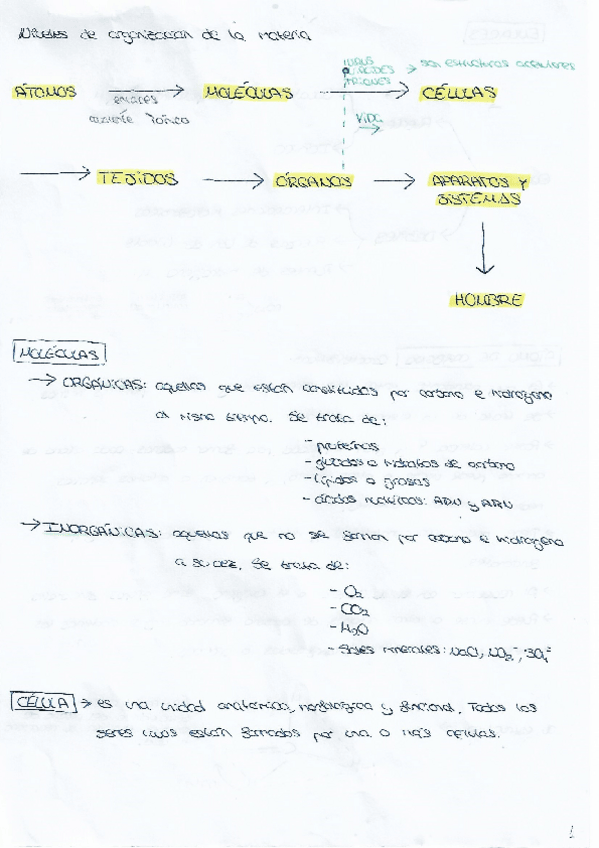 Niveles de organización de la materia
VIRUS
VIROIDES → son estructuras acelulares
PRIONES
ÁTOMOS → MOLÉCULAS → CÉLULAS
enlaces
covalente iónico
VIDA
→ TEJIDOS → ÓRGANOS → APARATOS Y
SISTEMAS
HOMBRE
MOLÉCULAS
→ ORGÁNICAS: aquellas que están constituidas por carbono e hidrógeno
al mismo tiempo. Se trata de:
- proteínas
- glúcidos o hidratos de carbono
- lípidos o grasas
- ácidos nucleicos: ADN y ARN
→ INORGÁNICAS: aquellas que no se forman por carbono e hidrógeno
a su vez. Se trata de:
- O₂
- CO₂
- H₂O
- Sales minerales: NaCl, NO₂⁻, SO₄⁼
CÉLULA → es una unidad anatómica, morfológica y funcional. Todos los
seres vivos están formados por una o más células.
1